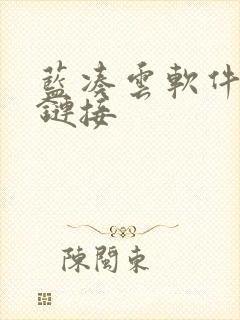 藍凑雲軟件
鏈接
陳閩東